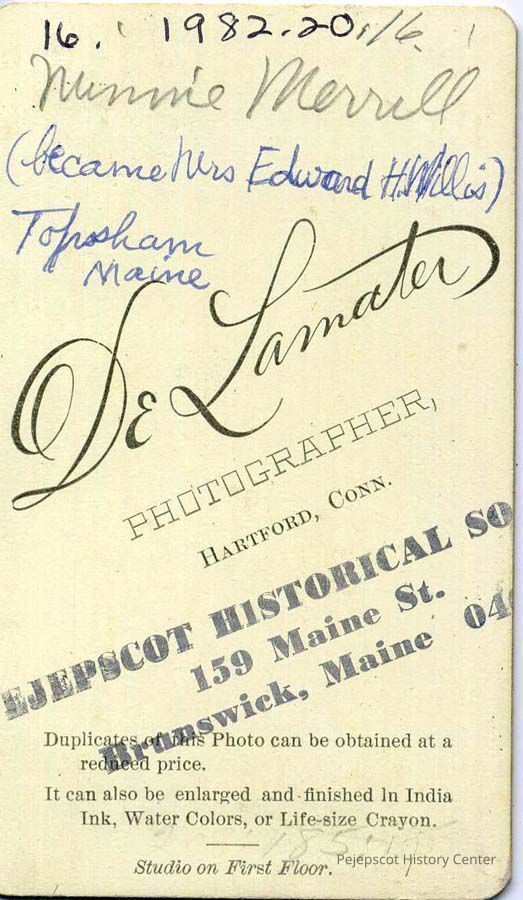 16. 1982.20.16.
Minnie Merrill
(became Mrs Edward H. Willis)
Topsham
Maine
De Lamater
PHOTOGRAPHER,
HARTFORD, CONN.
EJEPSCOT HISTORICAL SO
159 Maine St.
Brunswick, Maine 04
Duplicates of this Photo can be obtained at a
reduced price.
It can also be enlarged and finished in India
Ink, Water Colors, or Life-size Crayon.
Studio on First Floor.
Pejepscot History Center